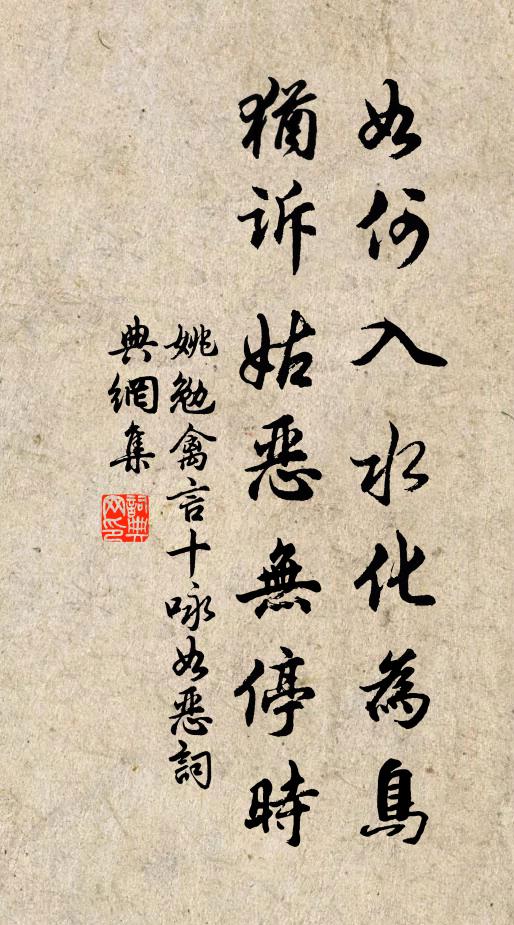 如何入水化為鳥
猶訴姑惡無停時
姚勉禽言十咏如惡詞
典網集
詞典网印